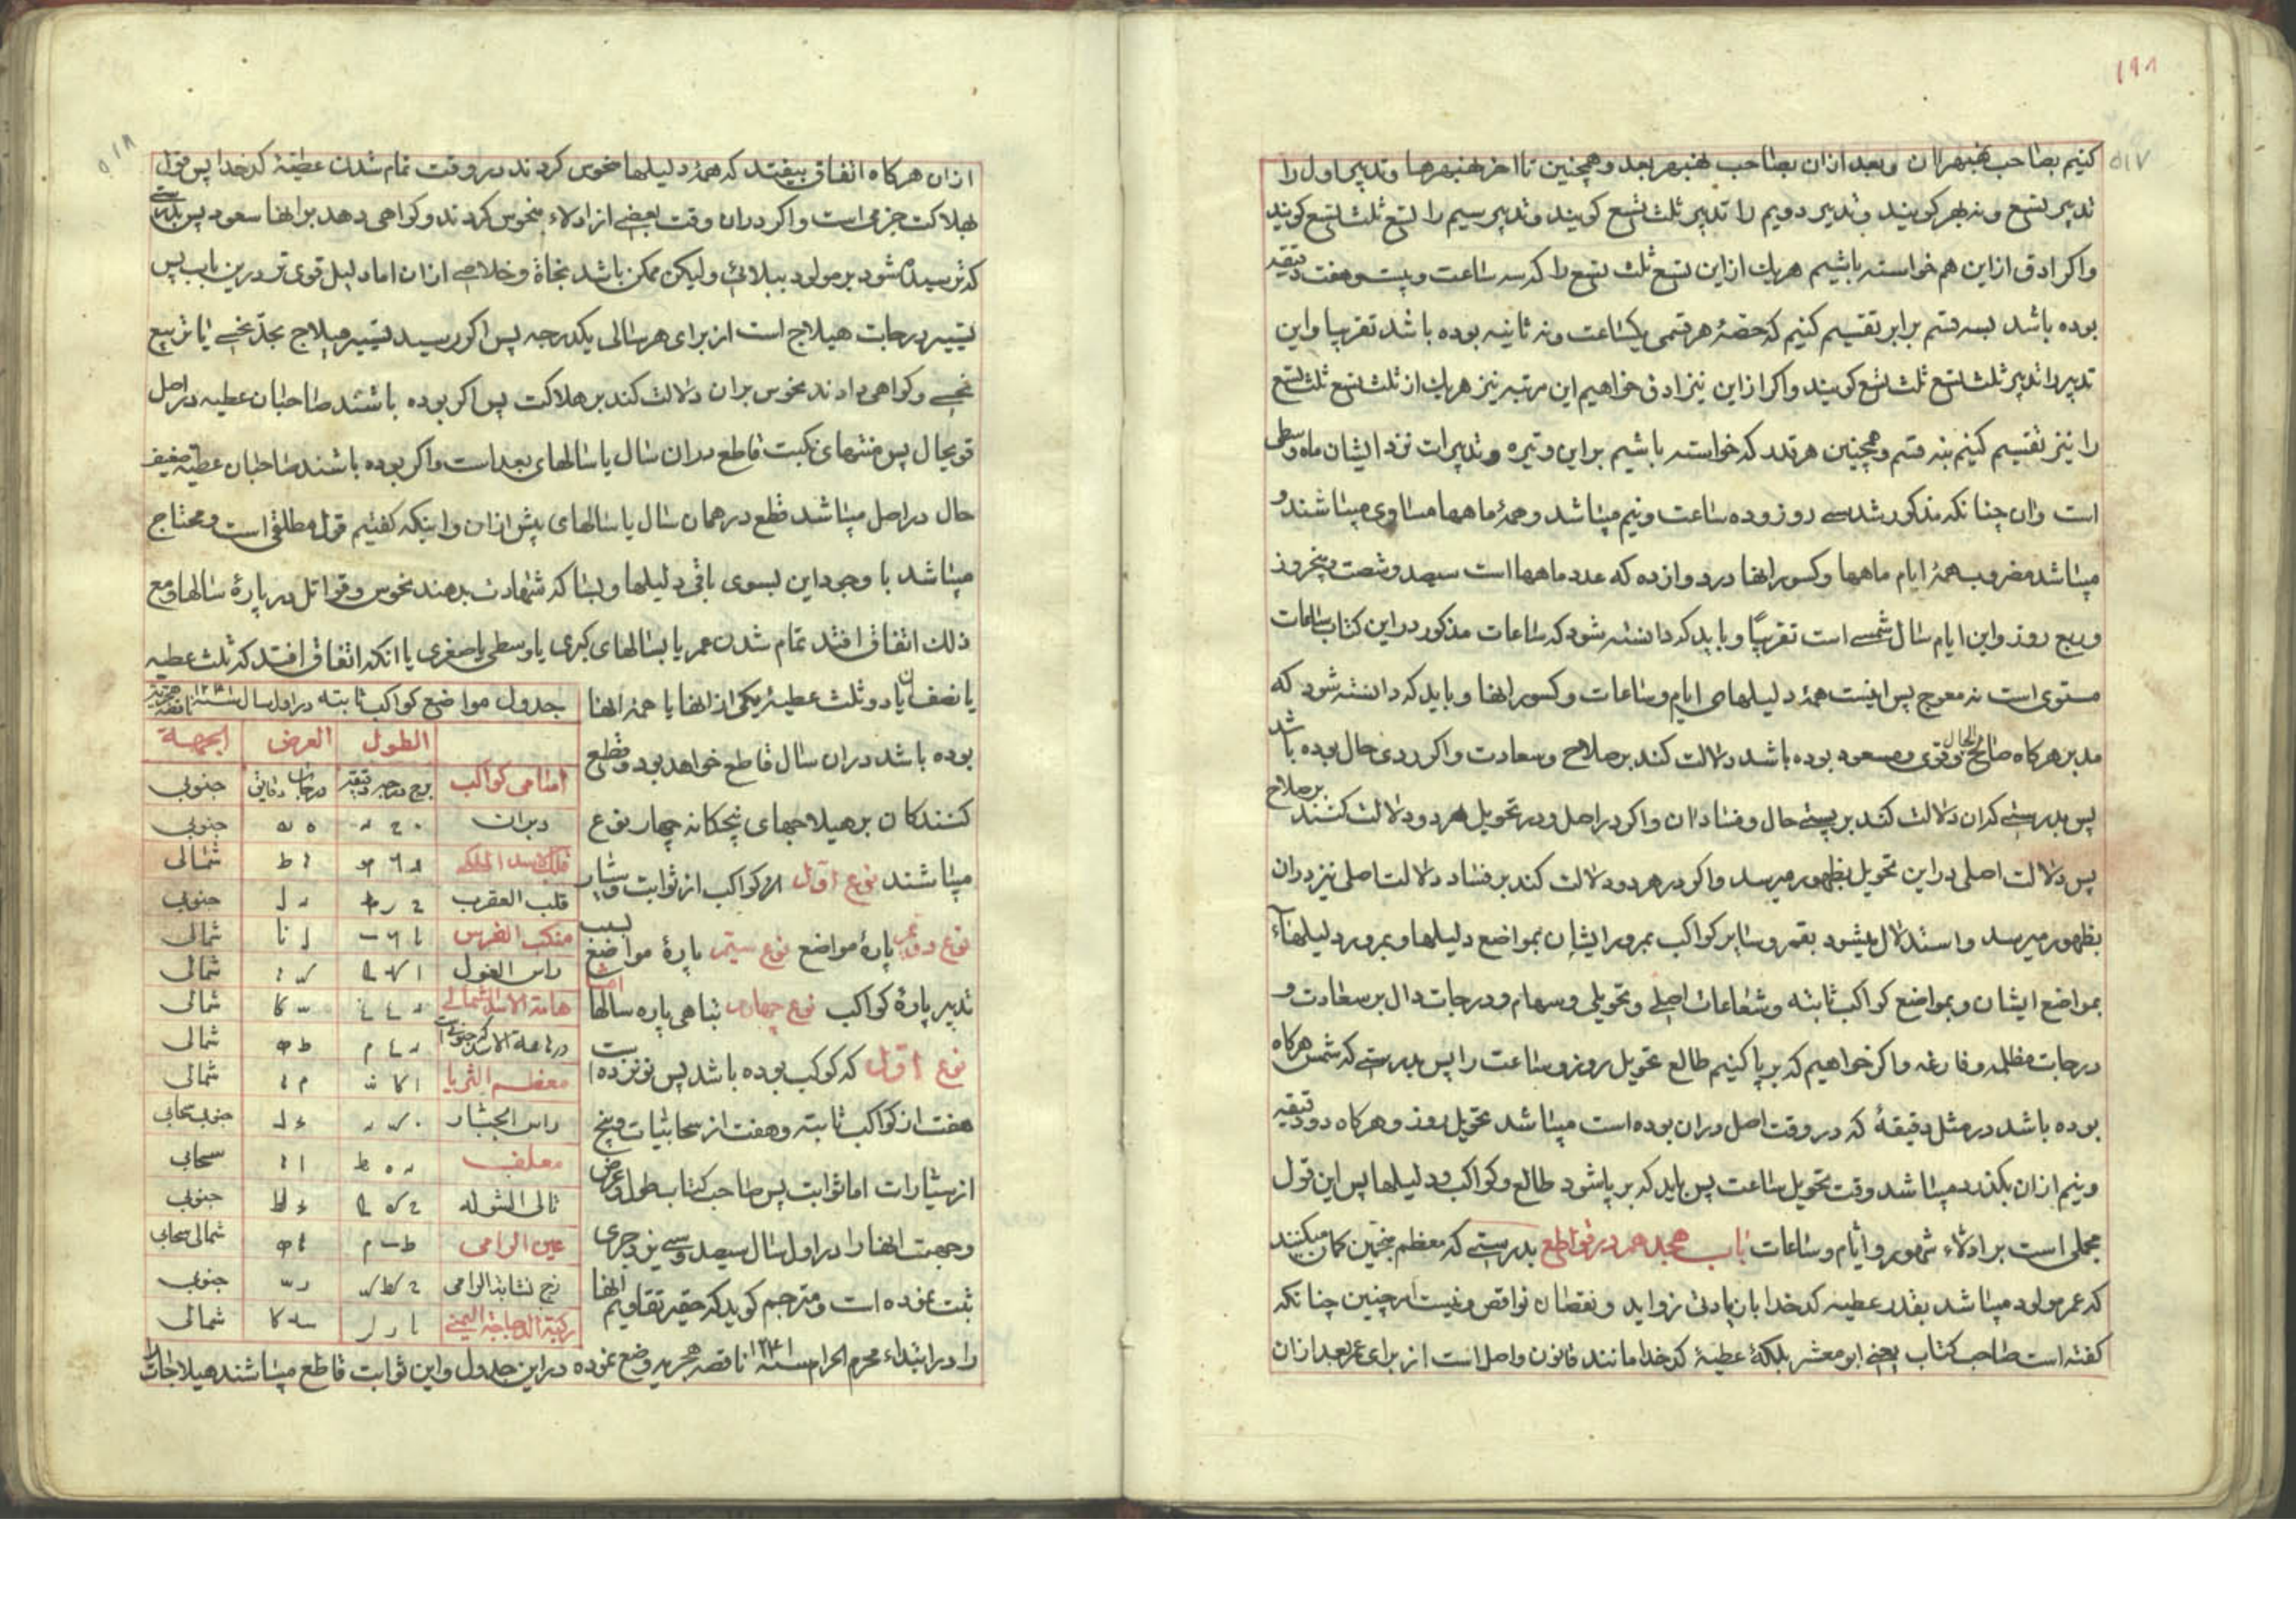 ۱۹۸
۵۱۷
کنیم بصاحب نهبهر آن و بعد ازان بصاحب نهبهر بعد و همچنین تا اخر نهبهرها و تدبیر اول را
تدبیر تسع و نه بهر کویند و تدبیر دویم را تدبیر ثلث تسع کویند و تدبیر سیم را تسع ثلث تسع کویند
و اکر ادق از این هم خواسته باشیم هر یك از این تسع ثلث تسع را که سه ساعت و بیست و هفت دقیقه
بوده باشد بسه قسم برابر تقسیم کنیم که حصهٔ هر قسمی یکساعت و نه ثانیه بوده باشد تقریبا و این
تدبیر را تدبیر ثلث تسع ثلث تسع کویند و اکر از این نیز ادق خواهیم این مرتبه نیز هر یك از ثلث تسع ثلث تسع
را نیز تقسیم کنیم بنه قسم و همچنین هر قدر که خواسته باشیم براین وتیره و تدبیرات نزد ایشان ماه وسطی
است وان چنانکه مذکور شد سی روز و ده ساعت و نیم میباشد و همهٔ ماهها مساوی میباشند و
میباشد مضروب همهٔ ایام ماهها و کسور انها در دوازده که عدد ماهها است سیصد و شصت و پنجروز
و ربع روز و این ایام سال شمسی است تقریبًا و باید که دانسته شود که ساعات مذکور در این کتاب ساعات
مستوی است نه معوج پس اینست همهٔ دلیلهای ایام و ساعات و کسور انها و باید که دانسته شود که
مدبر هرکاه صالح الحال و قوی و مسعود بوده باشد دلالت کند بر صلاح و سعادت و اکر ردی حال بوده باشد
پس بدرستی که ان دلالت کند بر پستی حال و فساد ان و اکر در اصل و در تحویل هر دو دلالت کنند بر صلاح
پس دلالت اصلی در این تحویل بظهور میرسد و اکر در هر دو دلالت کند بر فساد دلالت اصلی نیز دران
بظهور میرسد و استدلال میشود بقمر و سایر کواکب بمرور ایشان بمواضع دلیلها و بمرور دلیلها
بمواضع ایشان و بمواضع کواکب ثابته و شعاعات اصلی و تحویلی و سهام و درجات دال بر سعادت و
درجات مظلمه و فارغه و اکر خواهیم که بر پا کنیم طالع تحویل روز و ساعت را پس بدرستی که شمس هرکاه
بوده باشد در مثل دقیقهٔ که در وقت اصل دران بوده است میباشد تحویل روز و هرکاه دو دقیقه
و نیم ازان بکذرد میباشد وقت تحویل ساعت پس باید که بر پا شود طالع و کواکب و دلیلها پس این قول
مجملی است بر ادلاء شهور و ایام و ساعات باب هجدهم در قواطع بدرستی که معظم منجمین کمان میکنند
که عمر مولود میباشد بقدر عطیه کدخدا با زیادتی زواید و نقصان نواقص و نیست امر چنین چنانکه
کفته است صاحب کتاب یعنی ابو معشر بلکهٔ عطیهٔ کدخدا مانند قانون و اصل است از برای عمر بعد ازان
۵۱۸
ازان هرکاه اتفاق بیفتد که همهٔ دلیلها منحوس کردند در وقت تمام شدن عطیهٔ کدخدا پس قول
بهلاکت جزمی است و اکر دران وقت بعضی از ادلاء منحوس کردند و کواهی دهد بر انها سعود پس بدرستی
که ترسیده شود بر مولود ببلائی ولیکن ممکن باشد نجاة و خلاصی ازان اما دلیل قوی تر درین باب پس
تسییر درجات هیلاج است از برای هر سالی یکدرجه پس اکر رسید تسییر هیلاج بحدّ نحسی یا تربیع
نحسی و کواهی دادند نحوس بران دلالت کند بر هلاکت پس اکر بوده باشند صاحبان عطیه در اصل
قویحال پس منتهای نکبت قاطع دران سال یا سالهای بعد است و اکر بوده باشند صاحبان عطیه ضعیف
حال در اصل میباشد قطع در همان سال یا سالهای پیش ازان و اینکه کفتیم قول مطلقی است و محتاج
میباشد با وجود این بسوی باقی دلیلها و بسا که شهادت بدهند نحوس و قواتل در پارهٔ سالها و مع
ذلك اتفاق افتد تمام شدن عمر یا بسالهای کبری یا وسطی یا صغری یا انکه اتفاق افتد که ثلث عطیه
یا نصف ان یا دو ثلث عطیهٔ یکی از انها یا همهٔ انها
بوده باشد دران سال قاطع خواهد بود و قطع
کنندکان بر هیلاجهای پنجکانه چهار نوع
میباشند نوع اول از کواکب از ثوابت و سیار
نوع دویم پارهٔ مواضع نوع سیم پارهٔ مواضع بسبب
تدبیر پارهٔ کواکب نوع چهارم تباهی پاره سالها است
نوع اول که کوکب بوده باشد پس نوزده است
هفت از کواکب ثابته و هفت از سحابیات و پنج
از سیارات اما ثوابت پس صاحب کتاب طول و عرض
و جهت انها را در اول سال سیصد و سی یزدجردی
ثبت نموده است و مترجم کوید که حقیر تقاویم انها
را در ابتداء محرم الحرام سنه ۱۲۳۱ ناقصه هجریه وضع نموده در این جدول و این ثوابت قاطع میباشند هیلاجات را
جدول مواضع کواکب ثابته در اول سال سنه ۱۲۳۱ ناقصه هجریه
الطول العرض الجهة
اسامی کواکب برج درجه دقیقه درجات دقایق جنوبی
دبران جنوبی
قلب الاسد الملکی شمالی
قلب العقرب جنوبی
منکب الفرس شمالی
راس الغول شمالی
هامة الاسد شمالی شمالی
شمالی
معظم الثریا شمالی
راس الجبار جنوبی سحابی
معلف سحابی
تالی الشوله جنوبی
عین الرامی شمالی سحابی
زج نشابة الرامی جنوبی
رکبة الدجاجة الیمنی شمالی